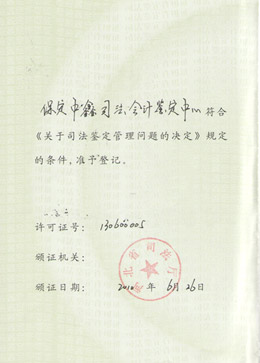 保定市鑫司法会计鉴定中心 符合
《关于司法鉴定管理问题的决定》规定
的条件，准予登记。
许可证号： 130600005
颁证机关：
河北省司法厅
颁证日期： 2010 年 6月 26日